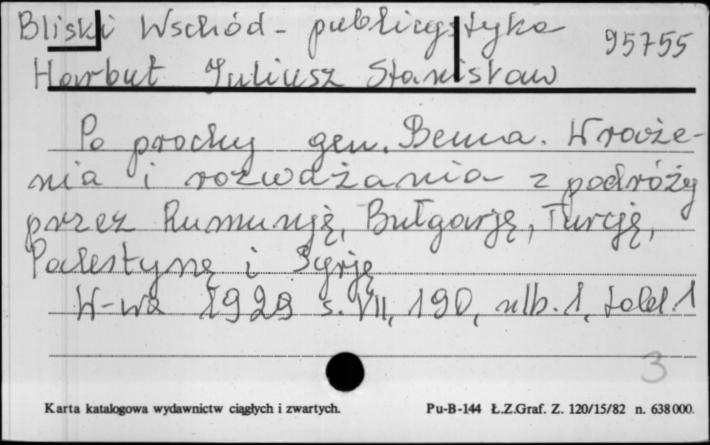 Bliski Wschód - publicystyka 95755
Harbut Juliusz Stanisław
Po prochy gen. Bema. Wraże-
nia i rozważania z podróży
przez Rumunję, Bułgarję, Turcję,
Palestynę i Syrję
W-wa 1929 s. VII, 190, nlb. 1, tabl. 1
3
Karta katalogowa wydawnictw ciągłych i zwartych. Pu-B-144 Ł.Z.Graf. Z. 120/15/82 n. 638000.